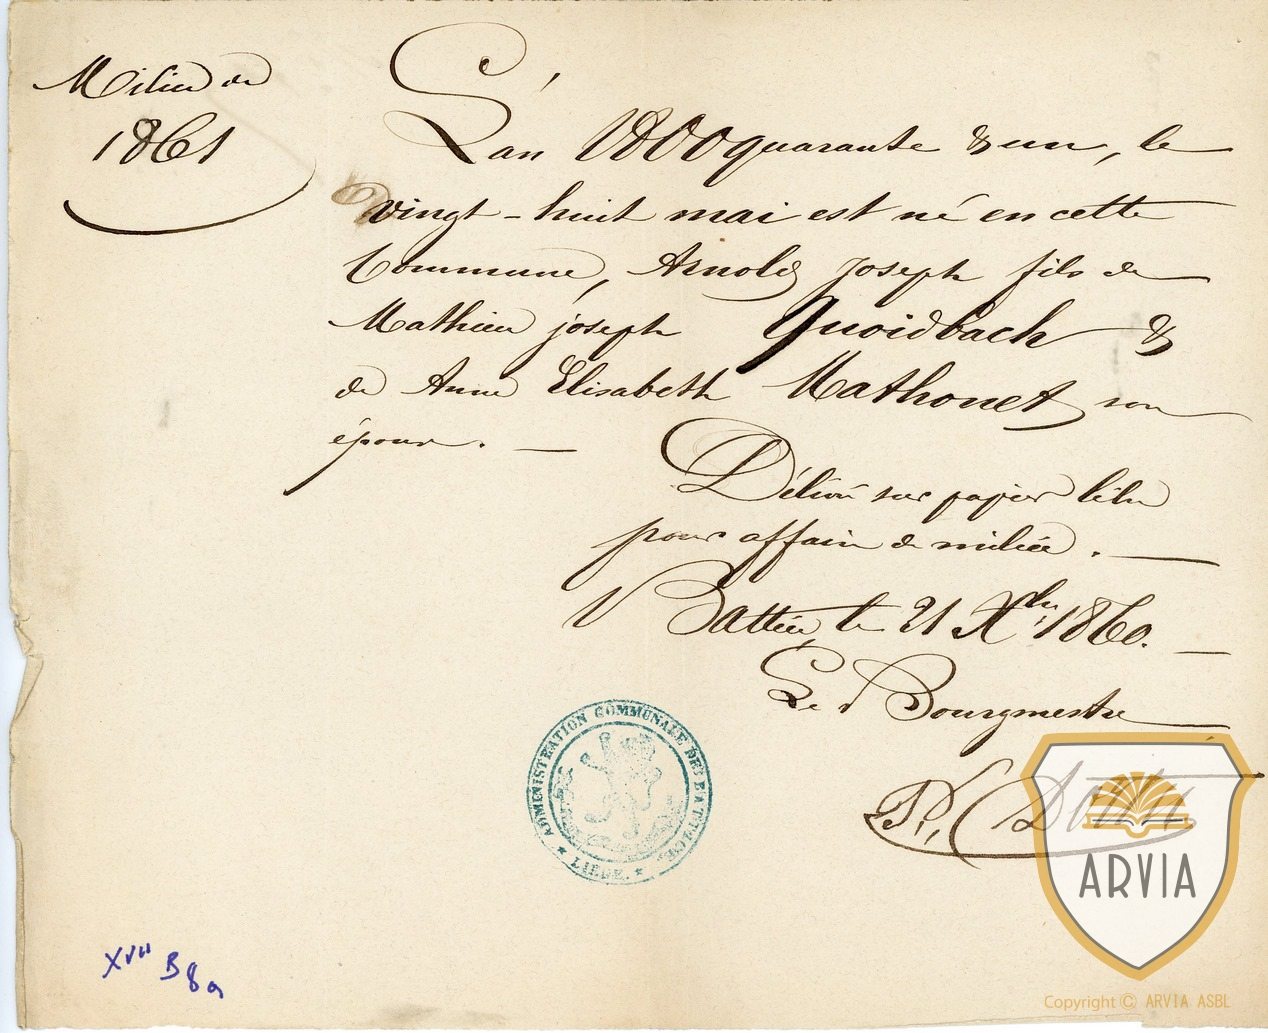 Milice de
1861
L'an 1800 quarante & un, le
vingt-huit mai est né en cette
Commune, Arnold Joseph fils de
Mathieu joseph Quoidbach &
de Anne Elisabeth Mathonet son
épouse. —
Délivré sur papier libre
pour affaire de milice. —
Battice, le 21 Xbre 1860. —
Le Bourgmestre
ADMINISTRATION COMMUNALE DE BATTICE
* LIEGE. *
ARVIA
XVII B 8a
Copyright © ARVIA ASBL